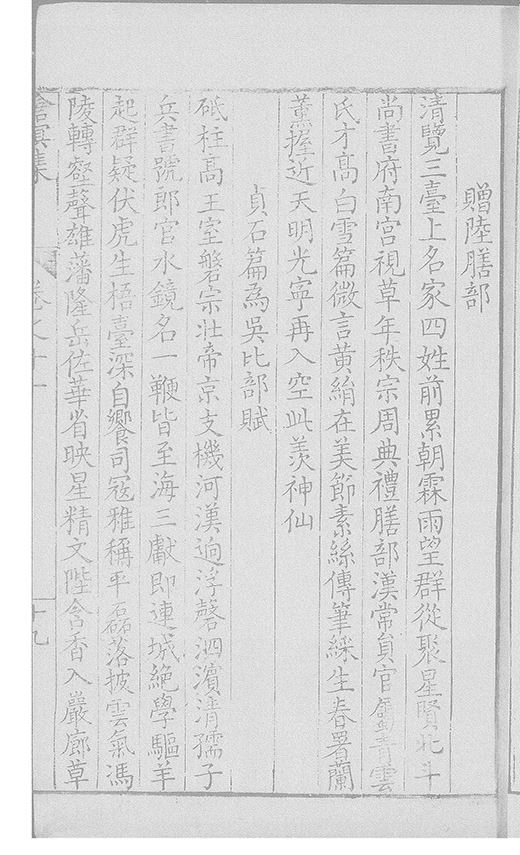 贈陸膳部
清覽三臺上名家四姓前累朝霖雨望群從聚星賢北斗
尚書府南宮視草年秩宗周典禮膳部漢常員官屬青雲
氏才高白雪篇微言黃絹在美節素絲傳筆綵生春署蘭
薰握近天明光寧再入空此羨神仙
貞石篇為吳比部賦
砥柱高王室磐宗壯帝京支機河漢逈浮磬泗濱清孺子
兵書號郎官水鏡名一鞭皆至海三獻即連城絕學驅羊
起群疑伏虎生梧臺深自饗司寇雅稱平磊落披雲氣馮
陵轉壑聲雄藩隆岳佐華省映星精文陛含香入巖廊草
滄溟集
卷之十一
十九